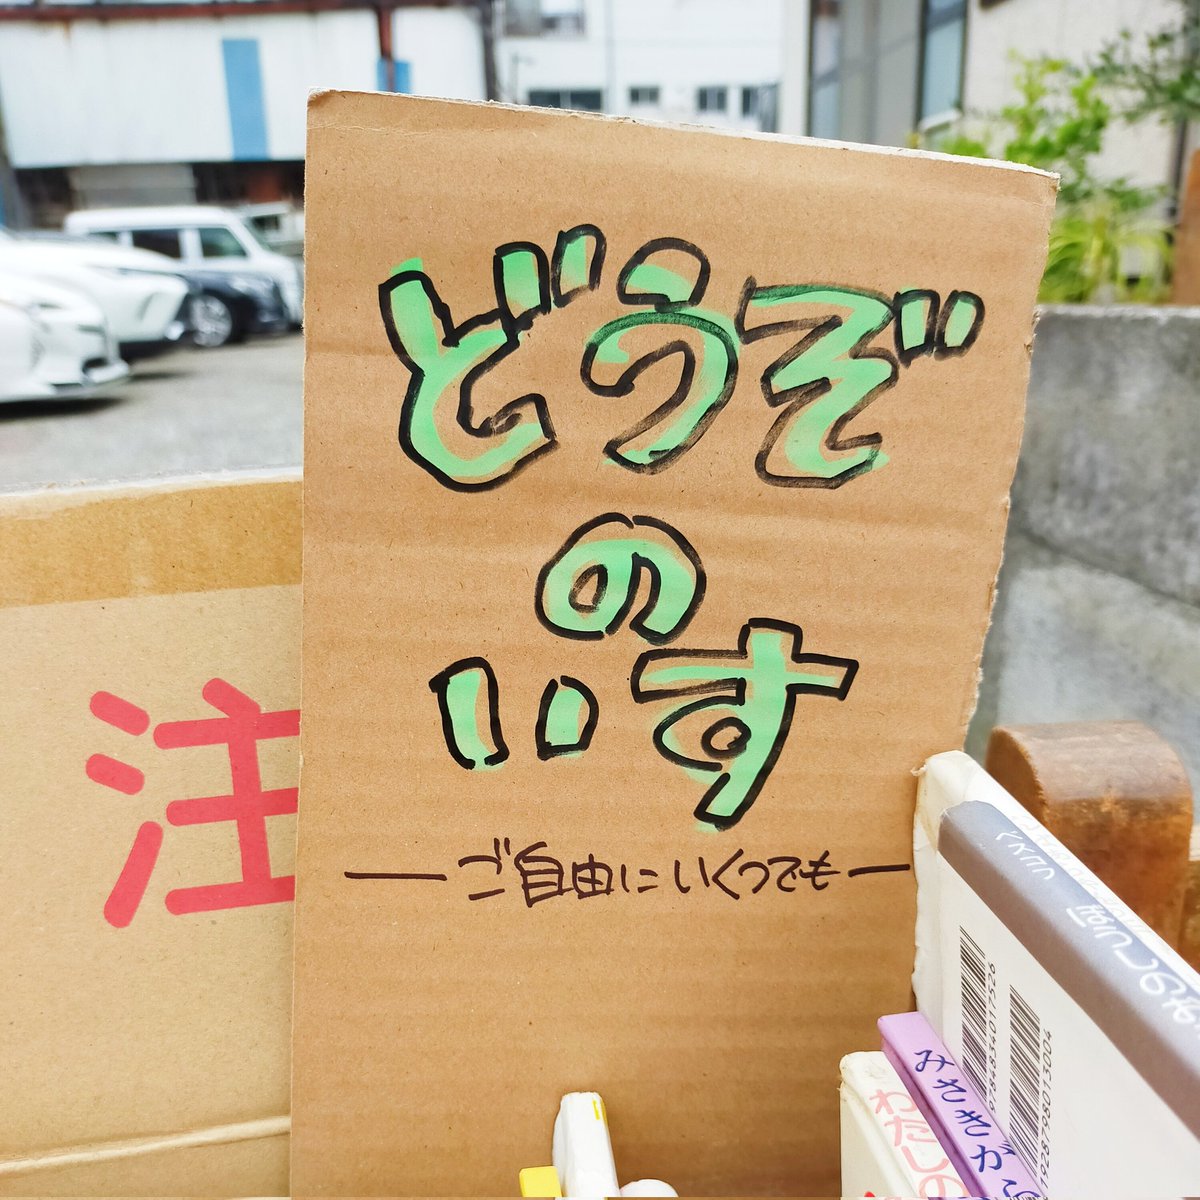 どうぞ
の
いす
ご自由にいくつでも
注
9784834017526
1928798013004
みさきが
わたしの